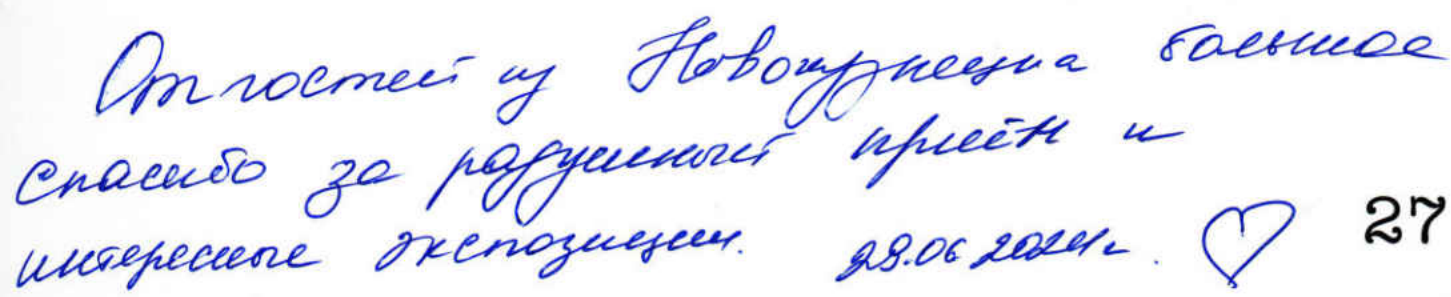 От гостей из Новокузнецка большое
спасибо за радушный приём и
интересные экспозиции. 29.06.2024г. 27